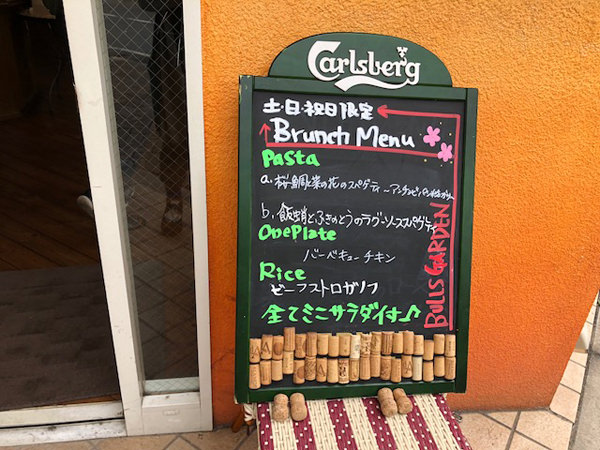 Carlsberg
土・日・祝日限定
Brunch Menu
Pasta
a. 桜鯛と菜の花のスパゲティ
b. 飯蛸とふきのとうのラグーソーススパゲティ
OnePlate
バーベキューチキン
Rice
ビーフストロガノフ
全てミニサラダ付♪
BULLS GARDEN